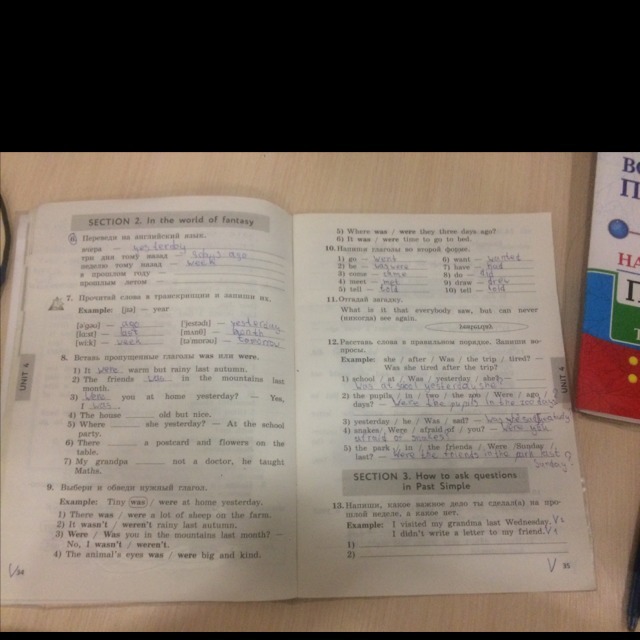 SECTION 2. In the world of fantasy
Переведи на английский язык.
вчера — yesterday
три дня тому назад — days ago
неделю тому назад — week
в прошлом году —
прошлым летом —
7. Прочитай слова в транскрипции и запиши их.
Example: [jɪə] — year
[ə'gəʊ] — ago ['jestədi] — yesterday
[lɑ:st] — last [mʌnθ] — month
[wi:k] — week [tə'mɒrəʊ] — tomorrow
8. Вставь пропущенные глаголы was или were.
1) It were warm but rainy last autumn.
2) The friends was in the mountains last
month.
3) Were you at home yesterday? — Yes,
I was.
4) The house old but nice.
5) Where she yesterday? — At the school
party.
6) There a postcard and flowers on the
table.
7) My grandpa not a doctor, he taught
Maths.
9. Выбери и обведи нужный глагол.
Example: Tiny was / were at home yesterday.
1) There was / were a lot of sheep on the farm.
2) It wasn't / weren't rainy last autumn.
3) Were / Was you in the mountains last month? —
No, I wasn't / weren't.
4) The animal's eyes was / were big and kind.
UNIT 4
V 34
5) Where was / were they three days ago?
6) It was / were time to go to bed.
10. Напиши глаголы во второй форме.
1) go — went 6) want — wanted
2) be — was were 7) have — had
3) come — came 8) do — did
4) meet — met 9) draw — drew
5) tell — told 10) tell — told
11. Отгадай загадку.
What is it that everybody saw, but can never
(никогда) see again.
12. Расставь слова в правильном порядке. Запиши во-
просы.
Example: she / after / Was / the trip / tired? —
Was she tired after the trip?
1) school / at / Was / yesterday / she? —
2) the pupils / in / two / the zoo / Were / ago /
days? — Were the pupils in the zoo
3) yesterday / he / Was / sad? —
4) snakes / Were / afraid of / you? — Were you
afraid of snakes?
5) the park / in / the friends / Were / Sunday /
last? — Were the friends in the park last
Sunday?
SECTION 3. How to ask questions
in Past Simple
13. Напиши, какое важное дело ты сделал(а) на про-
шлой неделе, а какое нет.
Example: I visited my grandma last Wednesday. V2
I didn't write a letter to my friend. V1
1)
2)
UNIT 4
V 35